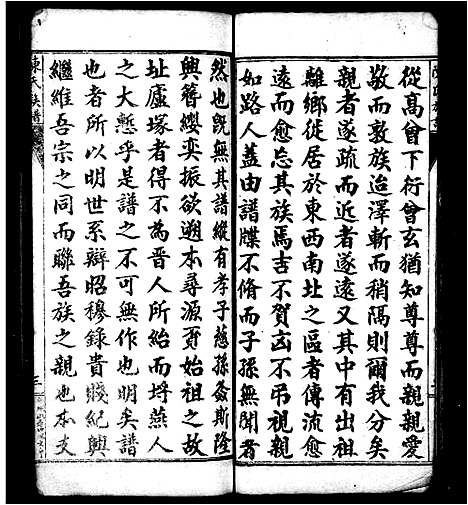 從高曾下衍曾玄猶知尊尊而親親愛
敬而敦族迨澤斬而稍隔則爾我分矣
親者遂疏而近者遂遠又其中有出居
離鄉徙居於東西南北之區者傳流愈
遠而愈忘其族焉吉不賀凶不弔視親
如路人蓋由譜牒不脩而子孫無聞者
然也旣無其譜縱有孝子慈孫螽斯隆
興簪纓奕振欲遡本尋源覓始祖之故
址廬塚者得不為晋人所紿而埓燕人
之大慙乎是譜之不可無作也明矣譜
也者所以明世系辯昭穆錄貴賤紀興
繼維吾宗之同而聯吾族之親也本支
陳氏族譜
三